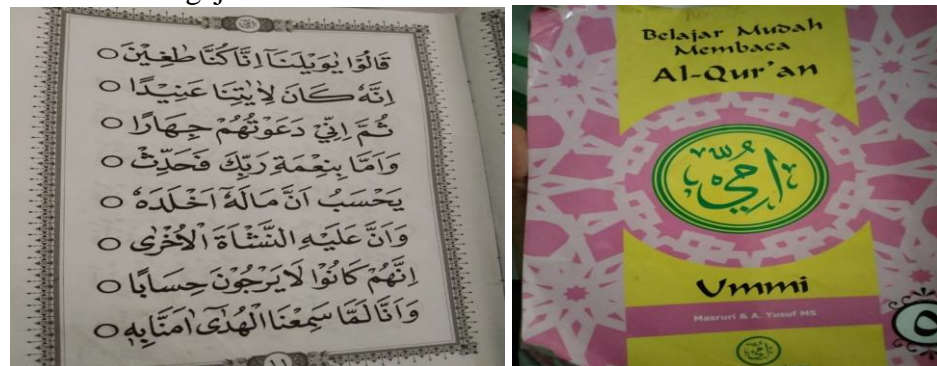 قَالُوْا يٰوَيْلَنَآ اِنَّا كُنَّا طٰغِيْنَ ○
اِنَّهٗ كَانَ لِاٰيٰتِنَا عَنِيْدًا ○
ثُمَّ اِنِّيْ دَعَوْتُهُمْ جِهَارًا ○
وَاَمَّا بِنِعْمَةِ رَبِّكَ فَحَدِّثْ ○
يَحْسَبُ اَنَّ مَالَهٗٓ اَخْلَدَهٗ ○
وَاَنَّ عَلَيْهِ النَّشْاَةَ الْاُخْرٰى ○
اِنَّهُمْ كَانُوْا لَا يَرْجُوْنَ حِسَابًا ○
وَاَنَّا لَمَّا سَمِعْنَا الْهُدٰٓى اٰمَنَّا بِهٖ ○
١١
Belajar Mudah
Membaca
Al-Qur'an
اُمِّيْ
Ummi
Masruri & A. Yusuf MS
٥